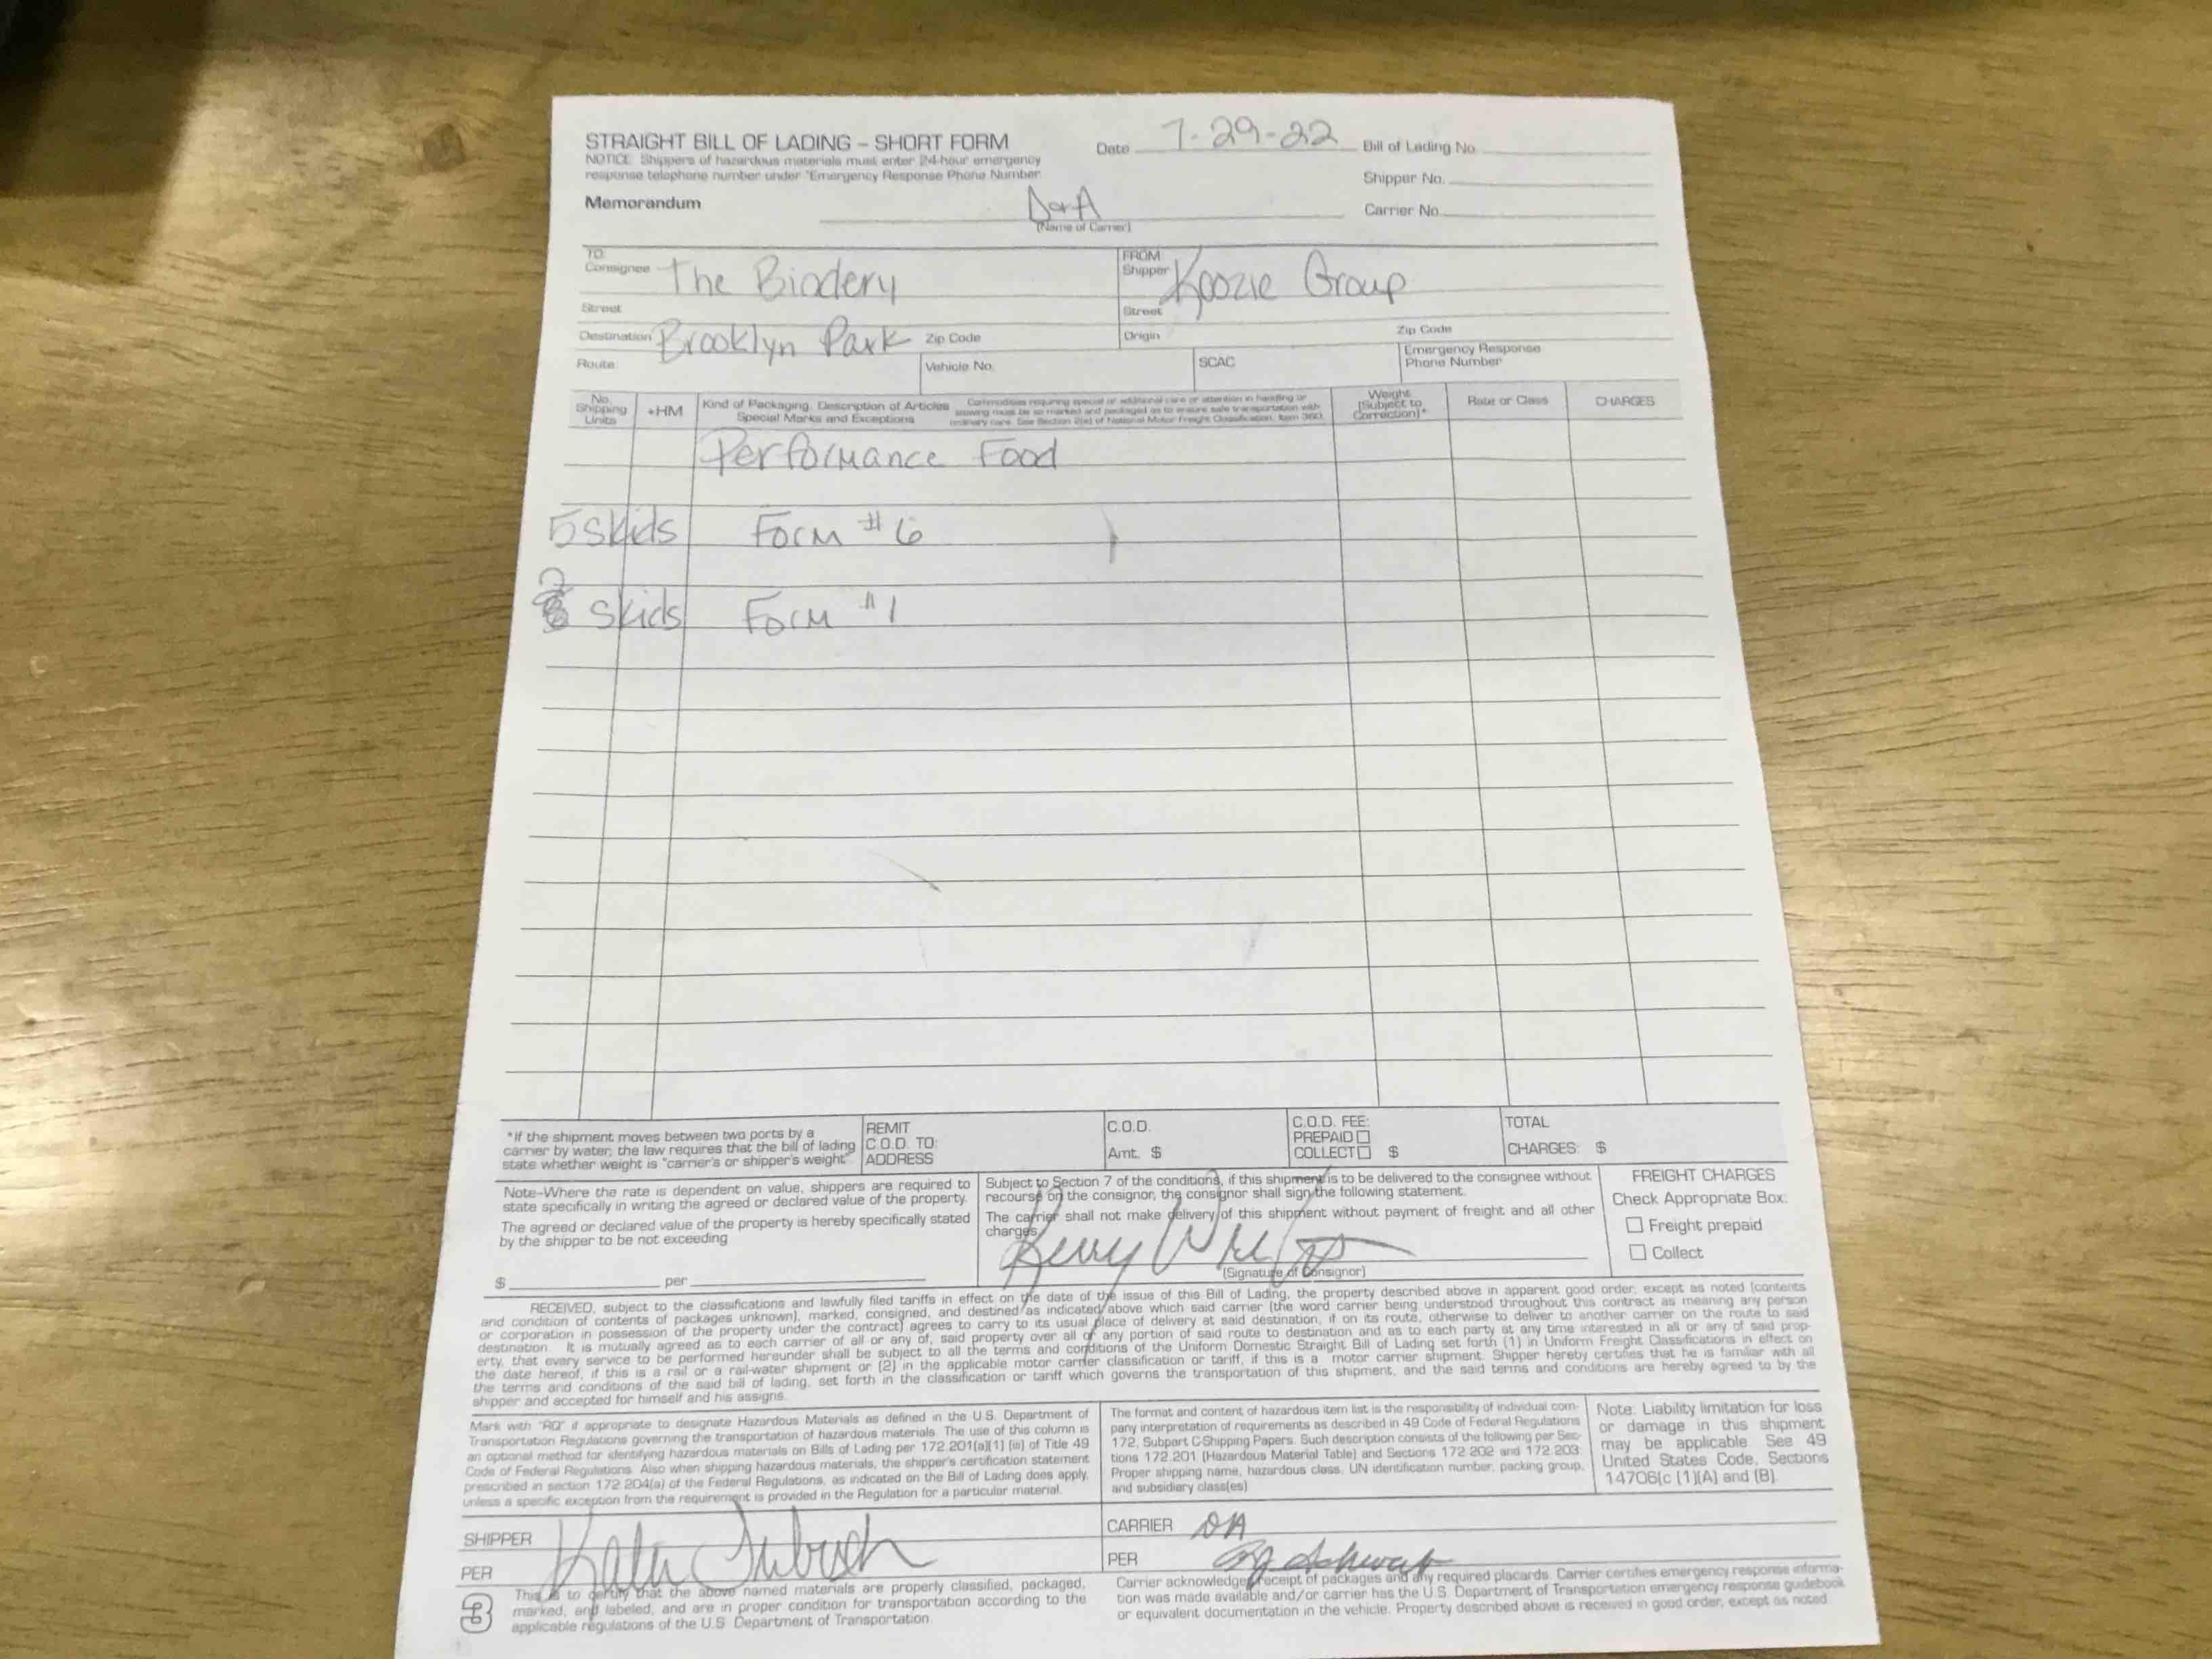 STRAIGHT BILL OF LADING – SHORT FORM
NOTICE: Shippers of hazardous materials must enter 24-hour emergency
response telephone number under "Emergency Response Phone Number.
Date 7-29-22
Bill of Lading No.
Shipper No.
Carrier No.
Memorandum
D&A
(Name of Carrier)
TO:
Consignee The Bindery
Street
Destination Brooklyn Park Zip Code
FROM:
Shipper Koozie Group
Street
Origin Zip Code
Route: Vehicle No. SCAC Emergency Response
Phone Number
No.
Shipping
Units
+HM
Kind of Packaging, Description of Articles
Special Marks and Exceptions
Commodities requiring special or additional care or attention in handling or
stowing must be so marked and packaged as to ensure safe transportation with
ordinary care. See Section 2(e) of National Motor Freight Classification, Item 360.
Weight
(Subject to
Correction)*
Rate or Class
CHARGES
Performance Food
5 skids Form #6
skids Form #1
*If the shipment moves between two ports by a
carrier by water, the law requires that the bill of lading
state whether weight is "carrier's or shipper's weight".
REMIT
C.O.D. TO:
ADDRESS
C.O.D.
Amt. $
C.O.D. FEE:
PREPAID
COLLECT $
TOTAL
CHARGES: $
Note–Where the rate is dependent on value, shippers are required to
state specifically in writing the agreed or declared value of the property.
The agreed or declared value of the property is hereby specifically stated
by the shipper to be not exceeding
$ per
Subject to Section 7 of the conditions, if this shipment is to be delivered to the consignee without
recourse on the consignor, the consignor shall sign the following statement.
The carrier shall not make delivery of this shipment without payment of freight and all other
charges.
(Signature of Consignor)
FREIGHT CHARGES
Check Appropriate Box:
Freight prepaid
Collect
RECEIVED, subject to the classifications and lawfully filed tariffs in effect on the date of the issue of this Bill of Lading, the property described above in apparent good order, except as noted (contents
and condition of contents of packages unknown), marked, consigned, and destined as indicated above which said carrier (the word carrier being understood throughout this contract as meaning any person
or corporation in possession of the property under the contract) agrees to carry to its usual place of delivery at said destination, if on its route, otherwise to deliver to another carrier on the route to said
destination. It is mutually agreed as to each carrier of all or any of, said property over all or any portion of said route to destination and as to each party at any time interested in all or any of said prop-
erty, that every service to be performed hereunder shall be subject to all the terms and conditions of the Uniform Domestic Straight Bill of Lading set forth (1) in Uniform Freight Classifications in effect on
the date hereof, if this is a rail or a rail-water shipment or (2) in the applicable motor carrier classification or tariff, if this is a motor carrier shipment. Shipper hereby certifies that he is familiar with all
the terms and conditions of the said bill of lading, set forth in the classification or tariff which governs the transportation of this shipment, and the said terms and conditions are hereby agreed to by the
shipper and accepted for himself and his assigns.
Mark with "RQ" if appropriate to designate Hazardous Materials as defined in the U.S. Department of
Transportation Regulations governing the transportation of hazardous materials. The use of this column is
an optional method for identifying hazardous materials on Bills of Lading per 172.201(a)(1) (iii) of Title 49
Code of Federal Regulations. Also when shipping hazardous materials, the shipper's certification statement
prescribed in section 172.204(a) of the Federal Regulations, as indicated on the Bill of Lading does apply,
unless a specific exception from the requirement is provided in the Regulation for a particular material.
The format and content of hazardous item list is the responsibility of individual com-
pany interpretation of requirements as described in 49 Code of Federal Regulations
172, Subpart C-Shipping Papers. Such description consists of the following per Sec-
tions 172.201 (Hazardous Material Table) and Sections 172.202 and 172.203:
Proper shipping name, hazardous class, UN identification number, packing group,
and subsidiary class(es)
Note: Liability limitation for loss
or damage in this shipment
may be applicable. See 49
United States Code, Sections
14706(c (1)(A) and (B).
SHIPPER
PER
CARRIER DA
PER
3
This is to certify that the above named materials are properly classified, packaged,
marked, and labeled, and are in proper condition for transportation according to the
applicable regulations of the U.S. Department of Transportation.
Carrier acknowledges receipt of packages and any required placards. Carrier certifies emergency response informa-
tion was made available and/or carrier has the U.S. Department of Transportation emergency response guidebook
or equivalent documentation in the vehicle. Property described above is received in good order, except as noted.